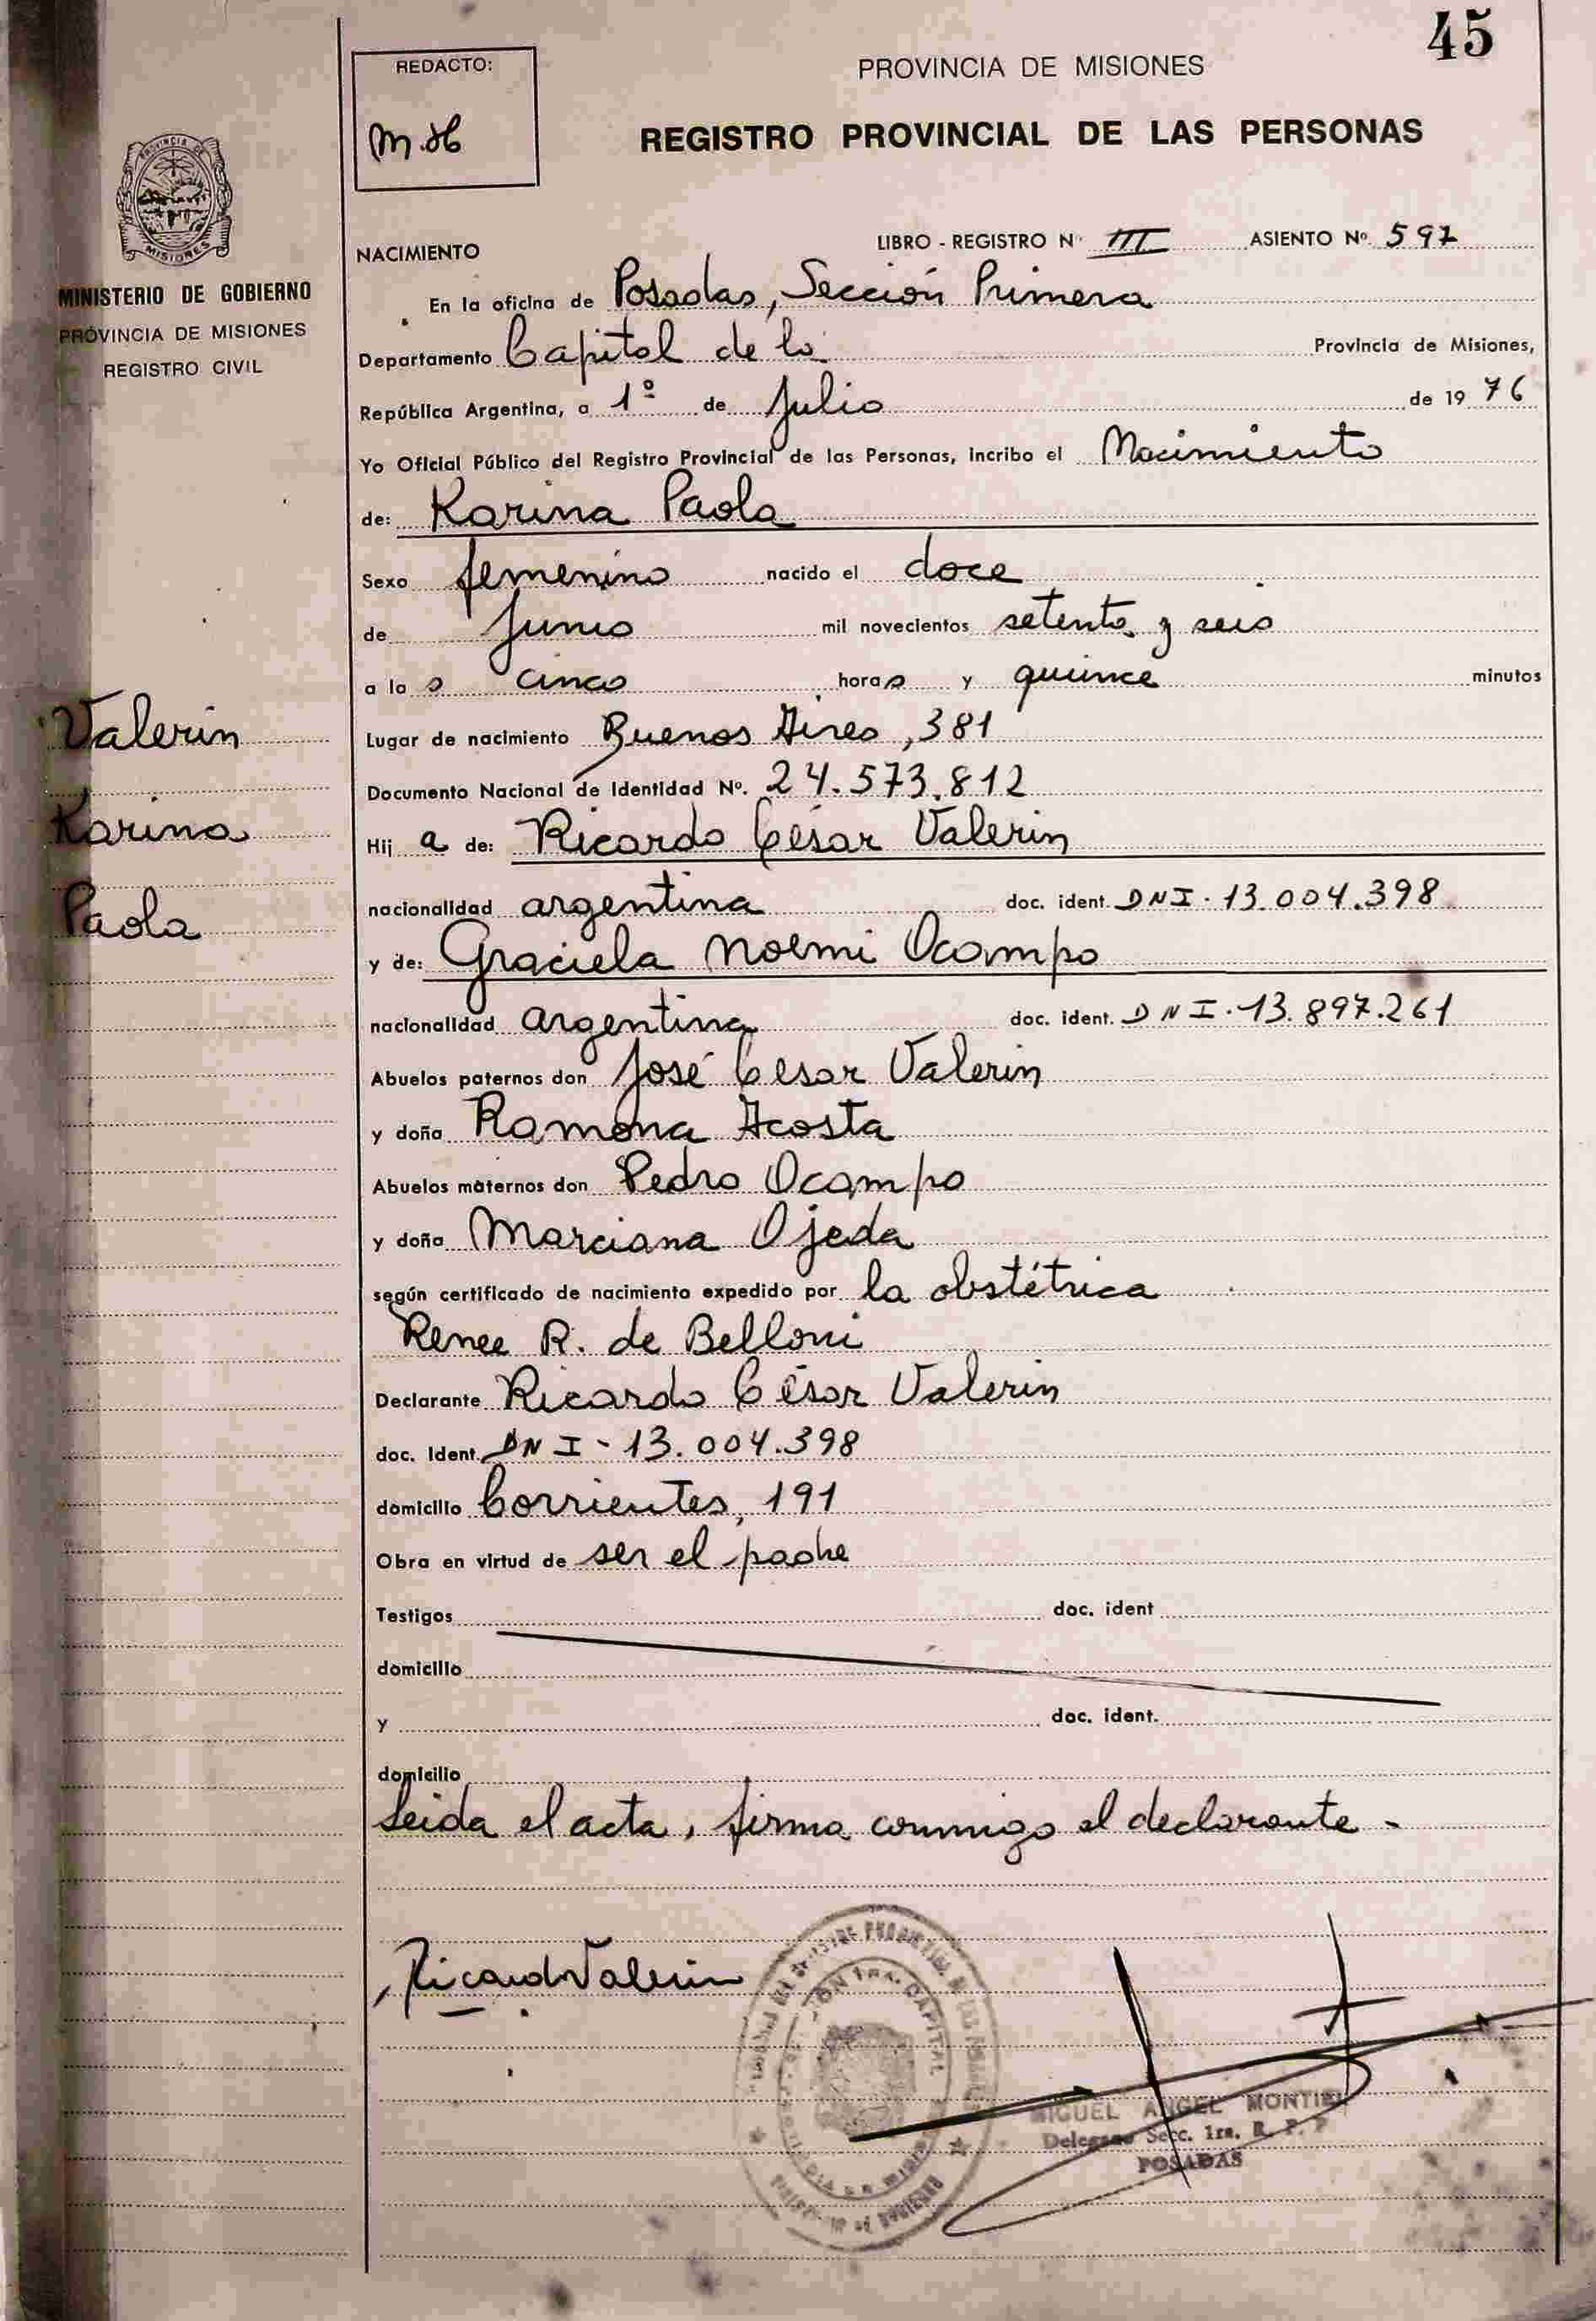 45
REDACTO:
PROVINCIA DE MISIONES
REGISTRO PROVINCIAL DE LAS PERSONAS
MISIONES
MINISTERIO DE GOBIERNO
PROVINCIA DE MISIONES
REGISTRO CIVIL
LIBRO - REGISTRO Nº III ASIENTO Nº 597
NACIMIENTO
En la oficina de Posadas, Sección Primera
Departamento Capital de la Provincia de Misiones,
República Argentina, a 1º de Julio de 1976
Yo Oficial Público del Registro Provincial de las Personas, incribo el Nacimiento
de: Karina Paola
Sexo femenino nacido el doce
de Junio mil novecientos setenta y seis
a las cinco horas y quince minutos
Valerin
Karina
Paola
Lugar de nacimiento Buenos Aires, 381
Documento Nacional de Identidad Nº. 24.573.812
Hija de: Ricardo César Valerin
nacionalidad argentina doc. ident. DNI. 13.004.398
y de: Graciela Noemi Ocampo
nacionalidad argentina doc. ident. DNI. 13.897.261
Abuelos paternos don José César Valerin
y doña Ramona Acosta
Abuelos maternos don Pedro Ocampo
y doña Marciana Ojeda
según certificado de nacimiento expedido por la obstétrica
Renee R. de Belloni
Declarante Ricardo César Valerin
doc. Ident. DNI - 13.004.398
domicilio Corrientes, 191
Obra en virtud de ser el padre
Testigos doc. ident
domicilio
y doc. ident.
domicilio
Leida el acta, firma conmigo el declarante -
Ricardo Valerin
MIGUEL ANGEL MONTIEL
Delegado Secc. 1ra. R. P. P
POSADAS